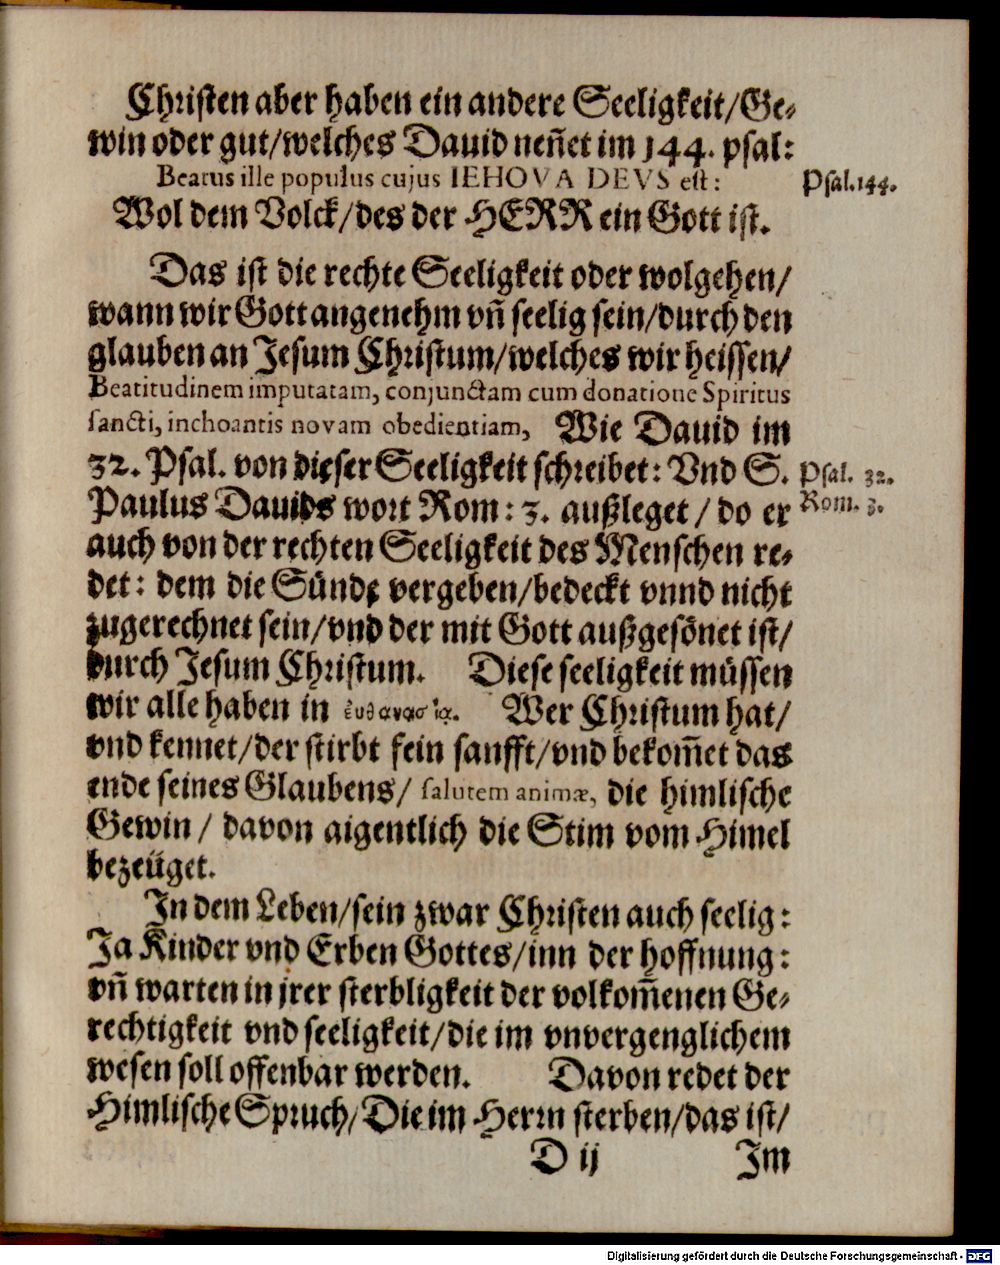 Christen aber haben ein andere Seeligkeit/Ge-
win oder gut/welches Dauid neñet im 144. psal:
Beatus ille populus cujus IEHOVA DEVS est:
Psal.144.
Wol dem Volck/des der HERR ein Gott ist.
Das ist die rechte Seeligkeit oder wolgehen/
wann wir Gott angenehm vñ seelig sein/durch den
glauben an Jesum Christum/welches wir heissen/
Beatitudinem imputatam, conjunctam cum donatione Spiritus
sancti, inchoantis novam obedientiam, Wie Dauid im
32. Psal. von dieser Seeligkeit schreibet: Vnd S.
Psal. 32.
Paulus Dauids wort Rom: 3. außleget / do er
Rom. 3.
auch von der rechten Seeligkeit des Menschen re-
det: dem die Sünde vergeben/bedeckt vnnd nicht
zugerechnet sein/vnd der mit Gott außgesönet ist/
durch Jesum Christum. Diese seeligkeit müssen
wir alle haben in ἐυθανασίᾳ. Wer Christum hat/
vnd kennet/der stirbt fein sanfft/vnd bekom̃et das
ende seines Glaubens/ salutem animæ, die himlische
Gewin / davon aigentlich die Stim vom Himel
bezeüget.
In dem Leben/sein zwar Christen auch seelig:
Ja Kinder vnd Erben Gottes/inn der hoffnung:
vñ warten in jrer sterbligkeit der volkom̃enen Ge-
rechtigkeit vnd seeligkeit/die im vnvergenglichem
wesen soll offenbar werden. Davon redet der
Himlische Spruch/Die im Herrn sterben/das ist/
D ij Im
Digitalisierung gefördert durch die Deutsche Forschungsgemeinschaft - DFG